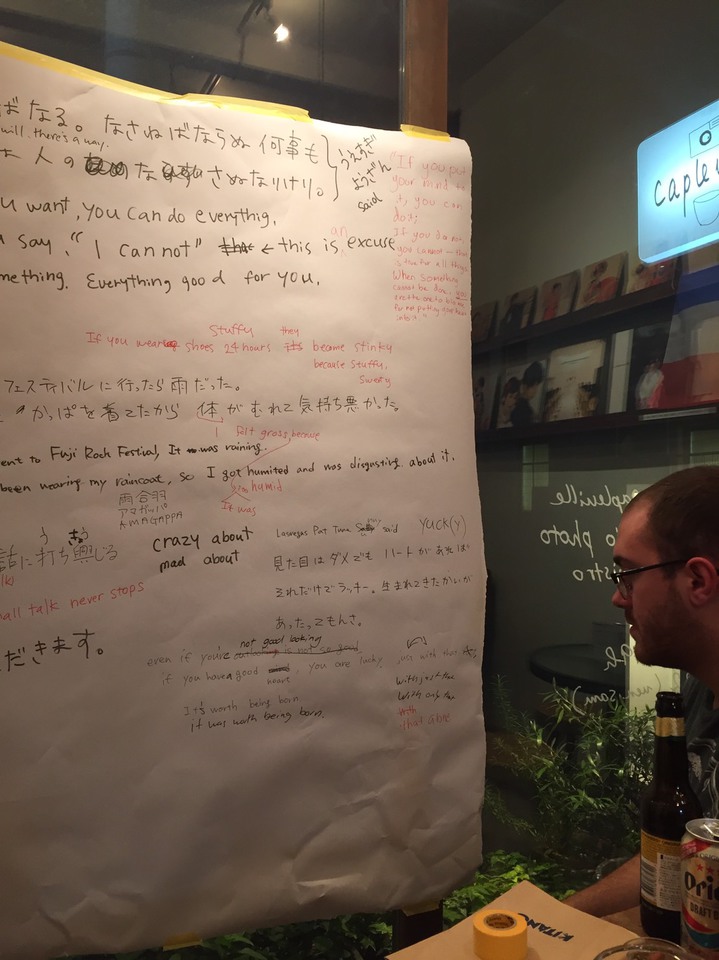 ばなる。なさねばならぬ 何事も
will. there's a way.
人の な さぬなりけり。
うえすぎ
ようざん
said
u want, you can do everythig,
say, "I can not" ← this is an excuse
mething. Everything good for you.
"If you put
your mind to
it, you can
do it;
If you do not,
you cannot—that
is true for all things.
When something
cannot be done,
for not putting
into it."
stuffy they
If you wear shoes 24 hours its became stinky
because stuffy,
sweaty
フェスティバルに行ったら雨だった。
かっぱを着てたから 体がむれて気持ち悪かった。
I felt gross because
ent to Fuji Rock Festival, It was raining.
been wearing my raincoat, so I got humited and was disgusting about it.
humid
It was
雨合羽
アマガッパ
AMAGAPPA
話に打ち興じる
crazy about
mad about
small talk never stops
said YUCK(Y)
見た目はダメでも ハートがあれば
それだけでラッキー。生まれてきたかいが
あったってもんさ。
だきます。
not good looking
even if you're is not so good,
if you have good heart, you are lucky, just with that
with just the
With only the
with
that alone
It's worth being born
it was worth being born.
caple
capleuille
photo
stro
KITANO
Orio
DRAFT BE